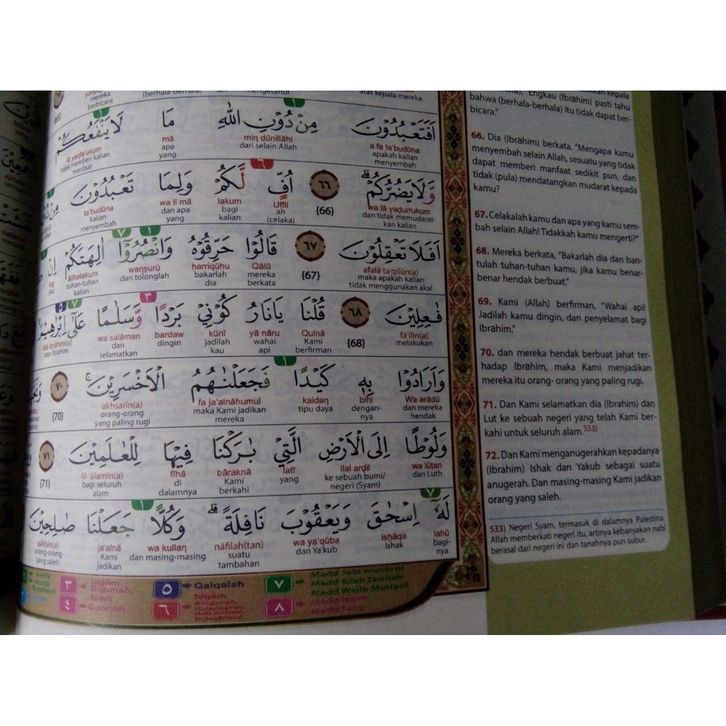 bahwa (berhala-berhala) itu tidak dapat ber-
bicara."
66. Dia (Ibrahim) berkata, "Mengapa kamu
menyembah selain Allah, sesuatu yang tidak
dapat memberi manfaat sedikit pun, dan
tidak (pula) mendatangkan mudarat kepada
kamu?
67. Celakalah kamu dan apa yang kamu sem-
bah selain Allah! Tidakkah kamu mengerti?"
68. Mereka berkata, "Bakarlah dia dan ban-
tulah tuhan-tuhan kamu, jika kamu benar-
benar hendak berbuat."
69. Kami (Allah) berfirman, "Wahai api!
Jadilah kamu dingin, dan penyelamat bagi
Ibrāhim,"
70. dan mereka hendak berbuat jahat ter-
hadap Ibrāhim, maka Kami menjadikan
mereka itu orang- orang yang paling rugi.
71. Dan Kami selamatkan dia (Ibrahim) dan
Lut ke sebuah negeri yang telah Kami ber-
kahi untuk seluruh alam.533)
72. Dan Kami menganugerahkan kepadanya
(Ibrahim) Ishak dan Yakub sebagai suatu
anugerah. Dan masing-masing Kami jadikan
orang yang saleh.
533) Negeri Syam, termasuk di dalamnya Palestina.
Allah memberkati negeri itu, artinya kebanyakan nabi
berasal dari negeri ini dan tanahnya pun subur.
اَفَتَعْبُدُوْنَ مِنْ دُوْنِ اللّٰهِ مَا لَا يَنْفَعُكُمْ
a fa la'budūna min dūnillāhi mā
apakah kalian dari selain Allah apa tidak memberi kalian
menyembah yang manfaat
وَّلَا يَضُرُّكُمْ ٦٦ اُفٍّ لَّكُمْ وَلِمَا تَعْبُدُوْنَ
wa lā yaḍurrukum {66} Uffil lakum wa li mā ta'budūna
dan tidak memudarat- ah bagi dan apa kalian
kan kalian (celaka) kalian yang menyembah
اَفَلَا تَعْقِلُوْنَ ٦٧ قَالُوْا حَرِّقُوْهُ وَانْصُرُوْٓا اٰلِهَتَكُمْ اِنْ
afalā ta'qilūn(a) {67} Qālū ḥarriqūhu wanṣurū ālihatakum
maka apakah kalian mereka bakarlah dan tolonglah tuhan-tuhan
tidak menggunakan akal berkata dia kalian
فٰعِلِيْنَ ٦٨ قُلْنَا يٰنَارُ كُوْنِيْ بَرْدًا وَّسَلٰمًا عَلٰٓى اِبْرٰهِيْمَ
fā'ilīn(a) {68} Qulnā yā nāru kūnī bardaw wa salāman
melakukan Kami wahai jadilah dingin dan
berfirman api kau selamatkan
وَاَرَادُوْا بِهٖ كَيْدًا فَجَعَلْنٰهُمُ الْاَخْسَرِيْنَ ٧٠
Wa arādū bihī kaidan fa ja'alnāhumul akhsarīn(a) {70}
dan mereka dengan- tipu daya maka Kami jadikan orang-orang
hendak nya mereka yang paling rugi
وَلُوْطًا اِلَى الْاَرْضِ الَّتِيْ بٰرَكْنَا فِيْهَا لِلْعٰلَمِيْنَ ٧١
wa lūṭan ilal arḍil latī bāraknā fīhā lil-'ālamīn(a) {71}
dan Luth ke sebuah bumi/ yang Kami di bagi seluruh
negeri (Syam) berkahi dalamnya alam
لَهٗٓ اِسْحٰقَ وَيَعْقُوْبَ نَافِلَةً وَكُلًّا جَعَلْنَا صٰلِحِيْنَ
lahū isḥāqa wa ya'qūba nāfilah(tan) wa kullan ja'alnā ṣāliḥīn(a)
bagi- Ishak dan Ya'kub suatu dan masing-masing Kami orang-orang
nya tambahan jadikan yang saleh
٣ Idgām Bigunah ٥ Qalqalah ٧
٤ ٦ Idgām ٨